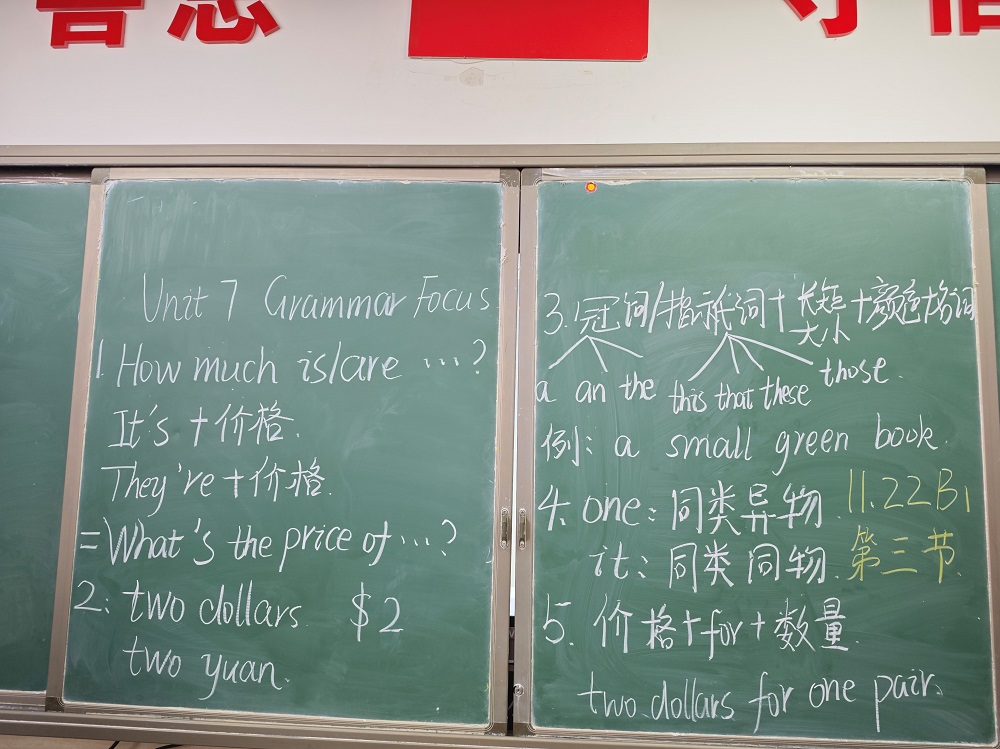 Unit 7 Grammar Focus
1 How much is/are ...?
It's + 价格.
They're + 价格.
= What's the price of ...?
2: two dollars $2
two yuan.
3. 冠词/指祇词 + 长短 大小 + 颜色 + 名词
a an the this that these those.
例: a small green book.
4. one: 同类异物
it: 同类同物.
11.22 B1
第三节.
5. 价格 + for + 数量.
two dollars for one pair.